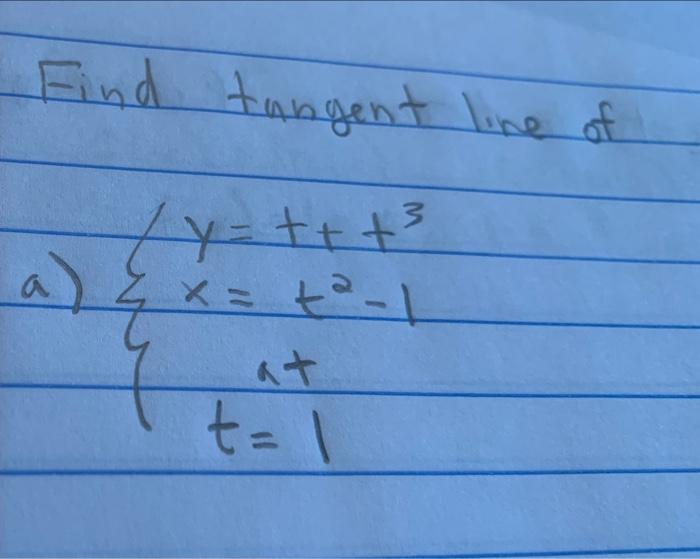 Find tangent line of
y = t + t³
a) { x = t² - 1
at
t = 1